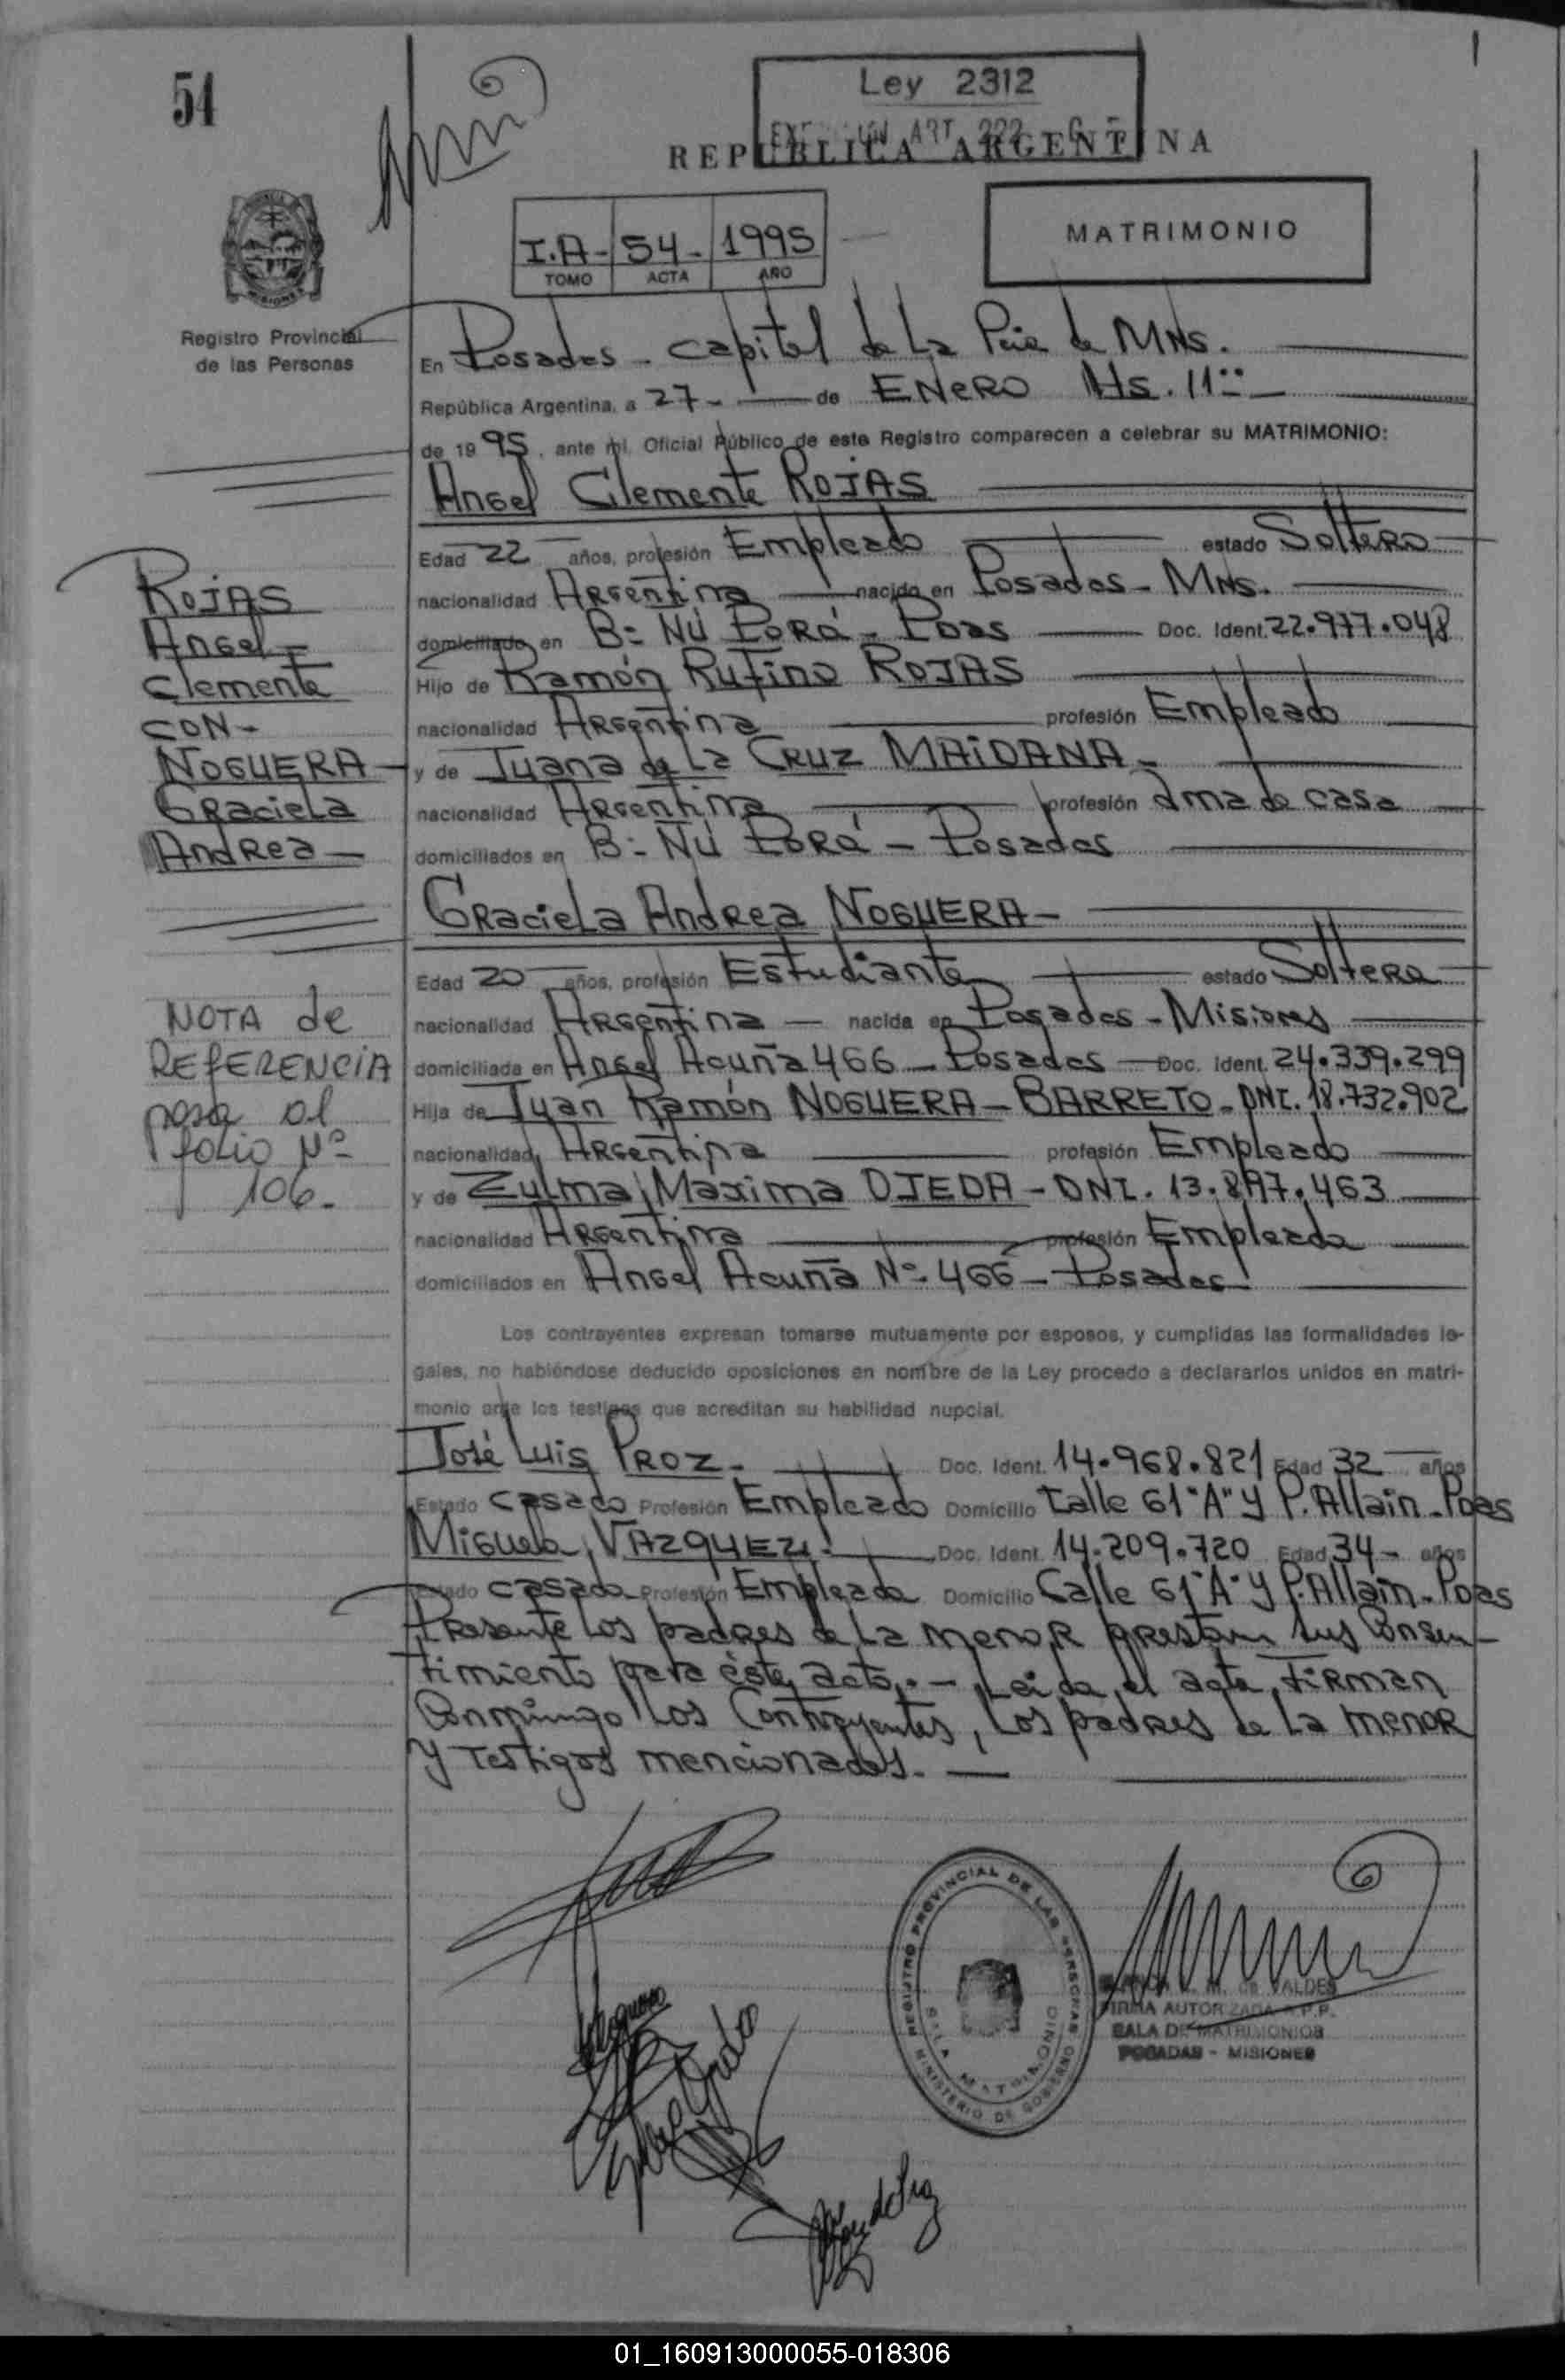 54
Ley 2312
ART. 222
REPUBLICA ARGENTINA
I.A- 54- 1995
TOMO ACTA AÑO
MATRIMONIO
Registro Provincial
de las Personas
En Posadas - Capital de La Pcia de MNS.
República Argentina, a 27- de ENERO Hs. 11:
de 1995, ante mi, Oficial Público de este Registro comparecen a celebrar su MATRIMONIO:
Angel Clemente ROJAS
Edad 22 años, profesión Empleado estado Soltero
nacionalidad Argentina nacido en Posadas - MNS.
domiciliado en B: Ñú Porá - Pdas Doc. Ident. 22.977.048
Hijo de Ramón Rufino ROJAS
nacionalidad Argentina profesión Empleado
y de Juana de La Cruz MAIDANA
nacionalidad Argentina profesión ama de casa
domiciliados en B: Ñú Porá - Posadas
Graciela Andrea NOGUERA-
Edad 20 años, profesión Estudiante estado Soltera
nacionalidad Argentina - nacida en Posadas - Misiones
domiciliada en Angel Acuña 466 - Posadas Doc. Ident. 24.339.299
Hija de Juan Ramón NOGUERA - BARRETO - DNI. 18.732.902
nacionalidad Argentina profesión Empleado
y de Zulma Maxima OJEDA - DNI. 13.897.463
nacionalidad Argentina profesión Empleada
domiciliados en Angel Acuña Nº 466 - Posadas
Los contrayentes expresan tomarse mutuamente por esposos, y cumplidas las formalidades le-
gales, no habiéndose deducido oposiciones en nombre de la Ley procedo a declararlos unidos en matri-
monio ante los testigos que acreditan su habilidad nupcial.
José Luis PROZ- Doc. Ident. 14.968.821 Edad 32 años
Estado casado Profesión Empleado Domicilio Calle 61 "A" y P. Allain - Pdas
Miguela VAZQUEZ. Doc. Ident. 14.209.720 Edad 34- años
Estado casada Profesión Empleada Domicilio Calle 61 "A" y P. Allain - Pdas
Presente los padres de La menor prestan sus Consen-
timiento para éste acto.- Leida el acta, Firman
Conmigo los Contrayentes, Los padres de La menor
y Testigos mencionados.
ROJAS
Angel
Clemente
CON-
NOGUERA
Graciela
Andrea
NOTA de
REFERENCIA
pasa al
folio Nº
106.
REGISTRO PROVINCIAL DE LAS PERSONAS
SALA MATRIMONIO
MINISTERIO DE GOBIERNO
M. de VALDES
FIRMA AUTORIZADA R.P.P.
SALA DE MATRIMONIOS
POSADAS - MISIONES
01_160913000055-018306